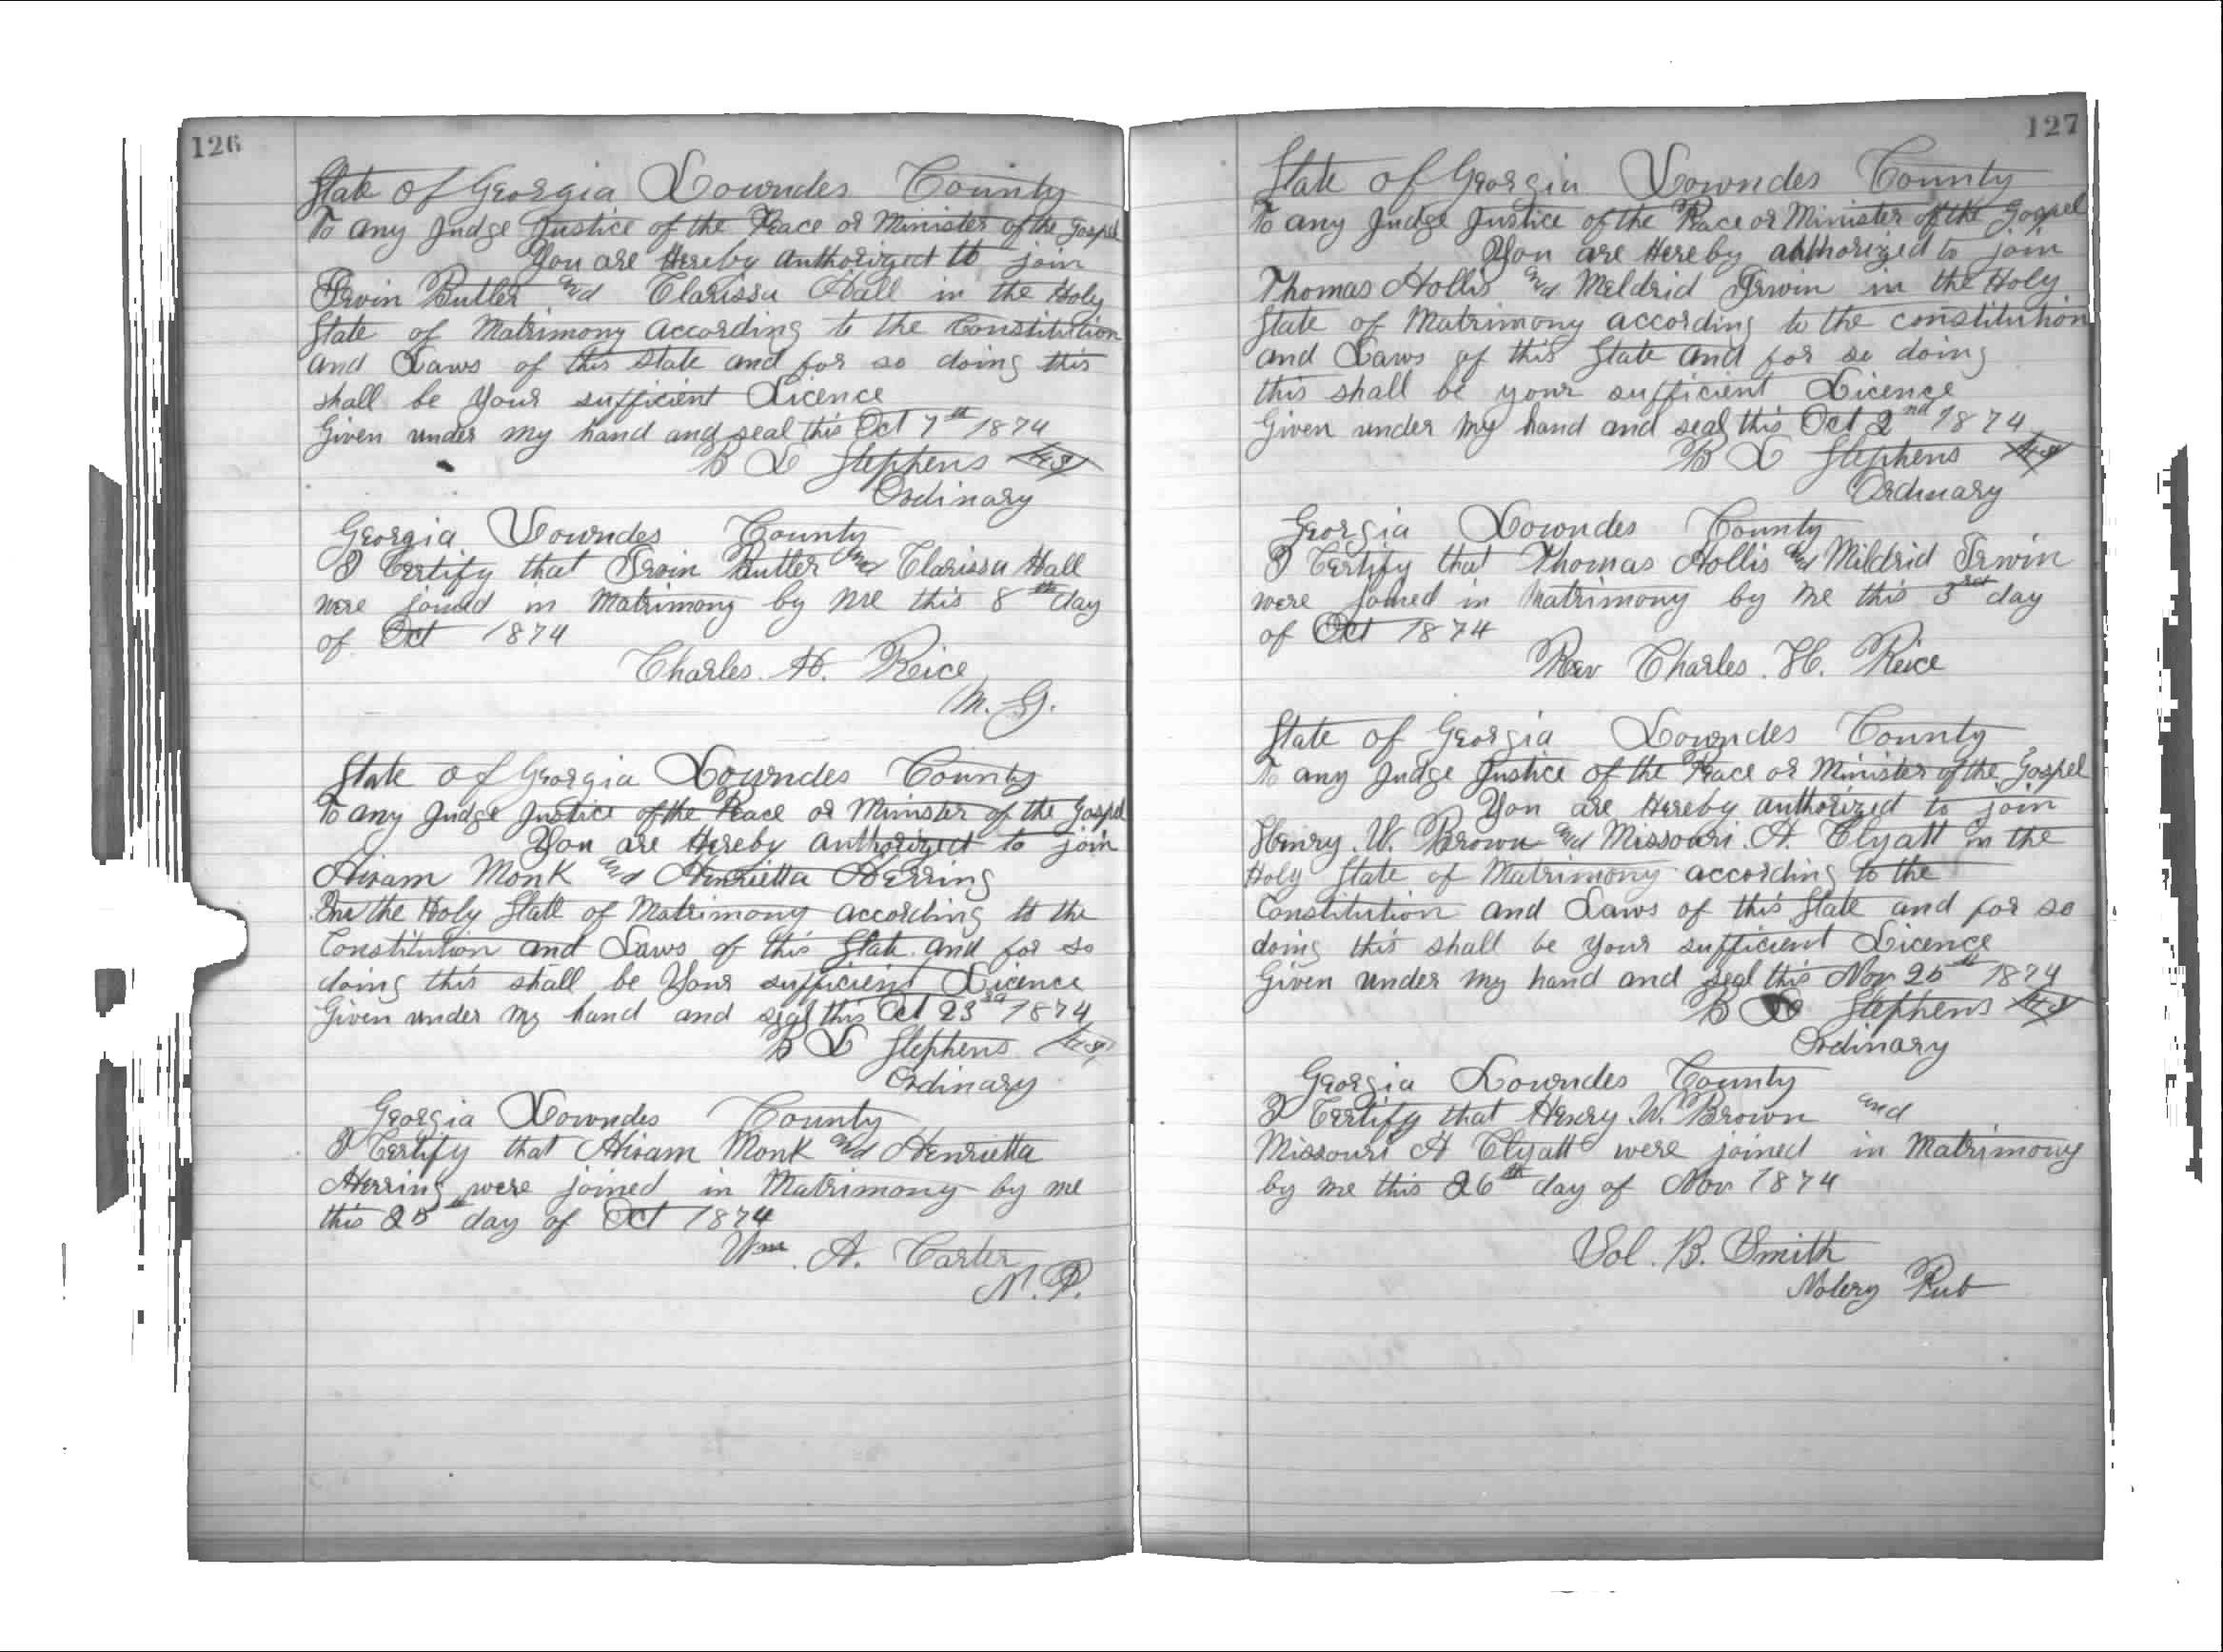 126
State of Georgia Lowndes County
To any Judge Justice of the Peace or Minister of the Gospel
You are Hereby authorized to join
Irvin Butler and Clarissa Hall in the Holy
State of Matrimony according to the Constitution
and Laws of this State and for so doing this
shall be your sufficient Licence
Given under my hand and seal this Oct 7th 1874
B L Stephens LS
Ordinary
Georgia Lowndes County
I Certify that Irvin Butler and Clarissa Hall
were joined in Matrimony by me this 8th day
of Oct 1874
Charles. H. Reice
M. G.
State of Georgia Lowndes County
To any Judge Justice of the Peace or Minister of the Gospel
You are Hereby authorized to join
Hiram Monk and Henrietta Herring
In the Holy State of Matrimony according to the
Constitution and Laws of this State and for so
doing this shall be Your sufficient Licence
Given under my hand and seal this Oct 23rd 1874
B L Stephens LS
Ordinary
Georgia Lowndes County
I Certify that Hiram Monk and Henrietta
Herring were joined in Matrimony by me
this 25th day of Oct 1874
Wm. A. Carter
N. P.
127
State of Georgia Lowndes County
To any Judge Justice of the Peace or Minister of the Gospel
You are Hereby authorized to join
Thomas Hollis and Meldrid Irwin in the Holy
State of Matrimony according to the constitution
and Laws of this State and for so doing
this shall be your sufficient Licence
Given under my hand and seal this Oct 2nd 1874
B L Stephens LS
Ordinary
Georgia Lowndes County
I Certify that Thomas Hollis and Mildrid Irwin
were joined in Matrimony by me this 3rd day
of Oct 1874
Rev Charles. H. Reice
State of Georgia Lowndes County
To any Judge Justice of the Peace or Minister of the Gospel
You are Hereby authorized to join
Henry. W. Brown and Missouri. A. Clyatt in the
Holy State of Matrimony according to the
Constitution and Laws of this State and for so
doing this shall be Your sufficient Licence
Given under my hand and seal this Nov 25th 1874
B L Stephens LS
Ordinary
Georgia Lowndes County
I Certify that Henry. W. Brown and
Missouri A Clyatt were joined in Matrimony
by me this 26th day of Nov 1874
Sol. B. Smith
Notery Pub